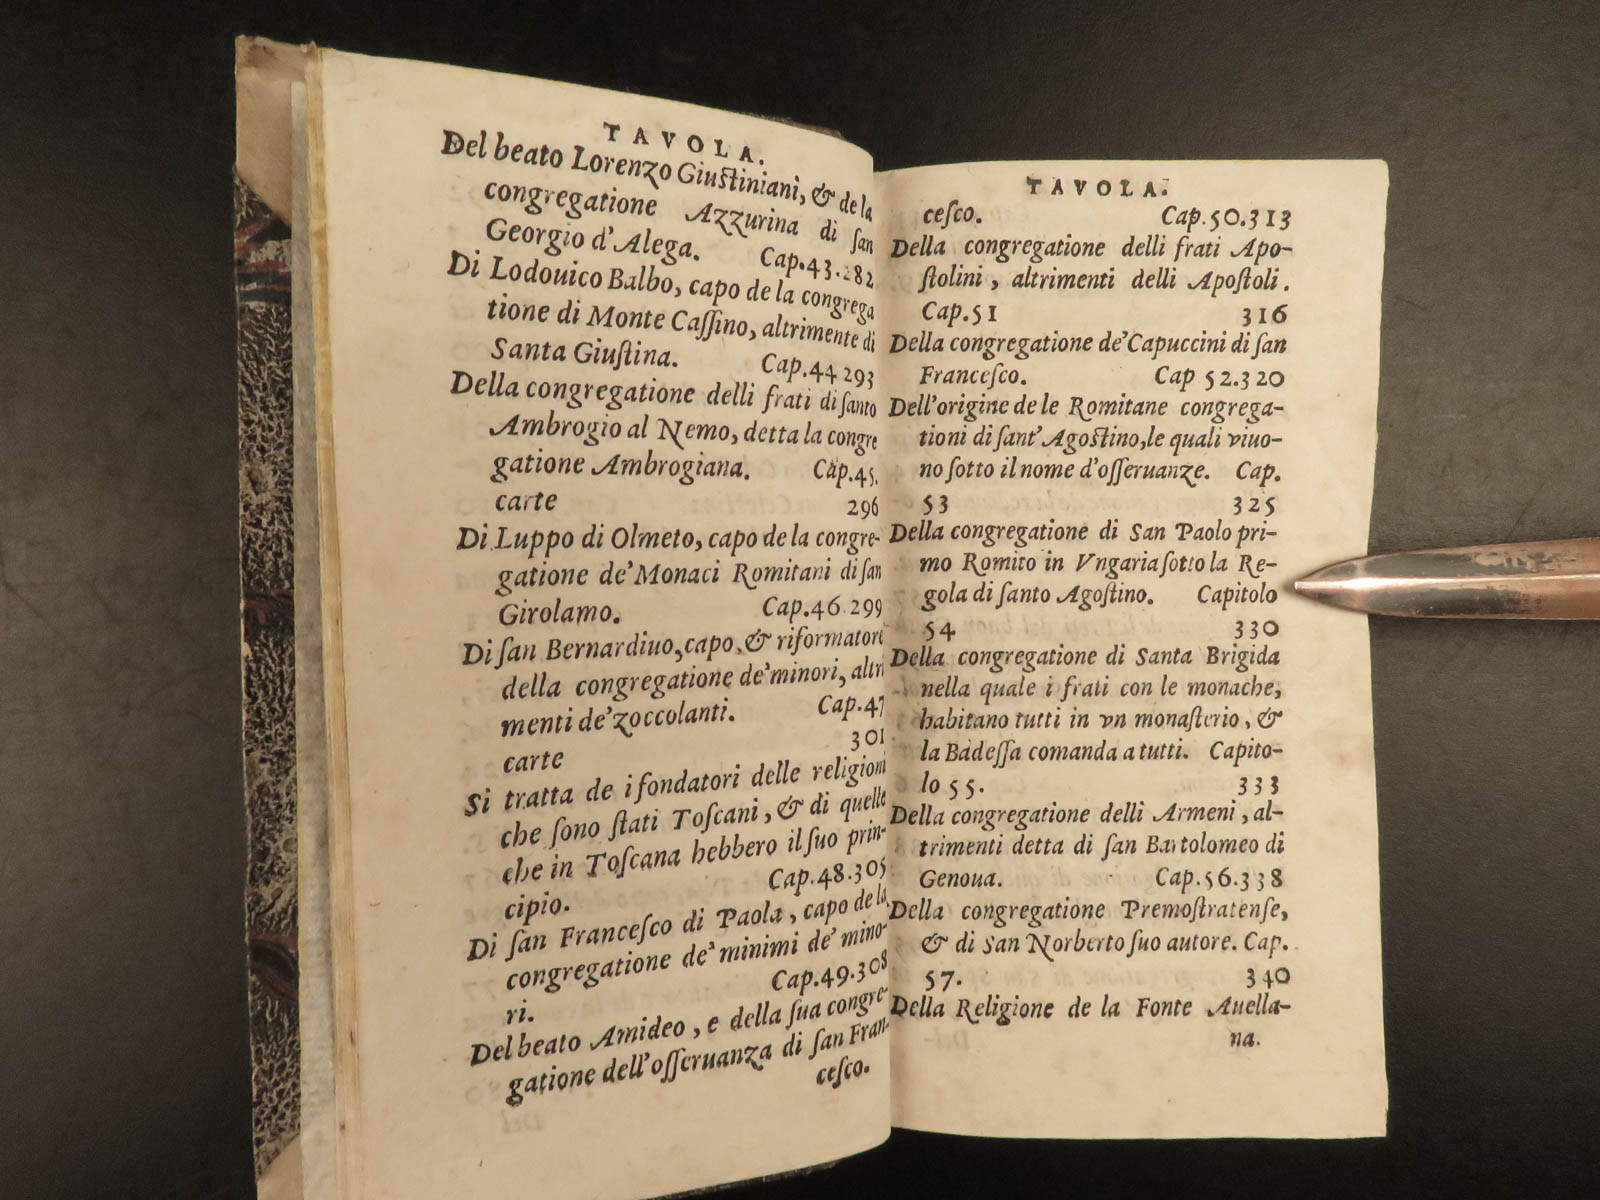 TAVOLA.
Del beato Lorenzo Giustiniani, & de la
congregatione Azzurina di ſan
Georgio d'Alega. Cap.43.282
Di Lodouico Balbo, capo de la congrega
tione di Monte Caſſino, altrimente di
Santa Giuſtina. Cap.44 293
Della congregatione delli frati di ſanto
Ambrogio al Nemo, detta la congre
gatione Ambrogiana. Cap.45.
carte 296
Di Luppo di Olmeto, capo de la congre-
gatione de' Monaci Romitani di ſan
Girolamo. Cap.46.299
Di ſan Bernardiuo, capo, & riformatore
della congregatione de' minori, altri
menti de' zoccolanti. Cap.47
carte 301
Si tratta de i fondatori delle religioni
che ſono ſtati Toſcani, & di quelle
che in Toſcana hebbero il ſuo prin-
cipio. Cap.48.305
Di ſan Franceſco di Paola, capo de la
congregatione de' minimi de' mino-
ri. Cap.49.308
Del beato Amideo, e della ſua congre-
gatione dell'oſſeruanza di ſan Fran-
ceſco.
TAVOLA.
ceſco. Cap.50.313
Della congregatione delli frati Apo-
ſtolini, altrimenti delli Apoſtoli.
Cap.51 316
Della congregatione de' Capuccini di ſan
Franceſco. Cap 52.320
Dell'origine de le Romitane congrega-
tioni di ſant' Agoſtino, le quali viuo-
no ſotto il nome d'oſſeruanze. Cap.
53 325
Della congregatione di San Paolo pri-
mo Romito in Vngaria ſotto la Re-
gola di ſanto Agoſtino. Capitolo
54 330
Della congregatione di Santa Brigida
nella quale i frati con le monache,
habitano tutti in vn monaſterio, &
la Badeſſa comanda a tutti. Capito-
lo 55. 333
Della congregatione delli Armeni, al-
trimenti detta di ſan Bartolomeo di
Genoua. Cap.56.338
Della congregatione Premoſtratenſe,
& di San Norberto ſuo autore. Cap.
57. 340
Della Religione de la Fonte Auella-
na.